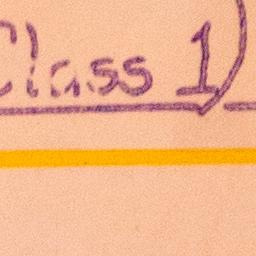 Class 1)